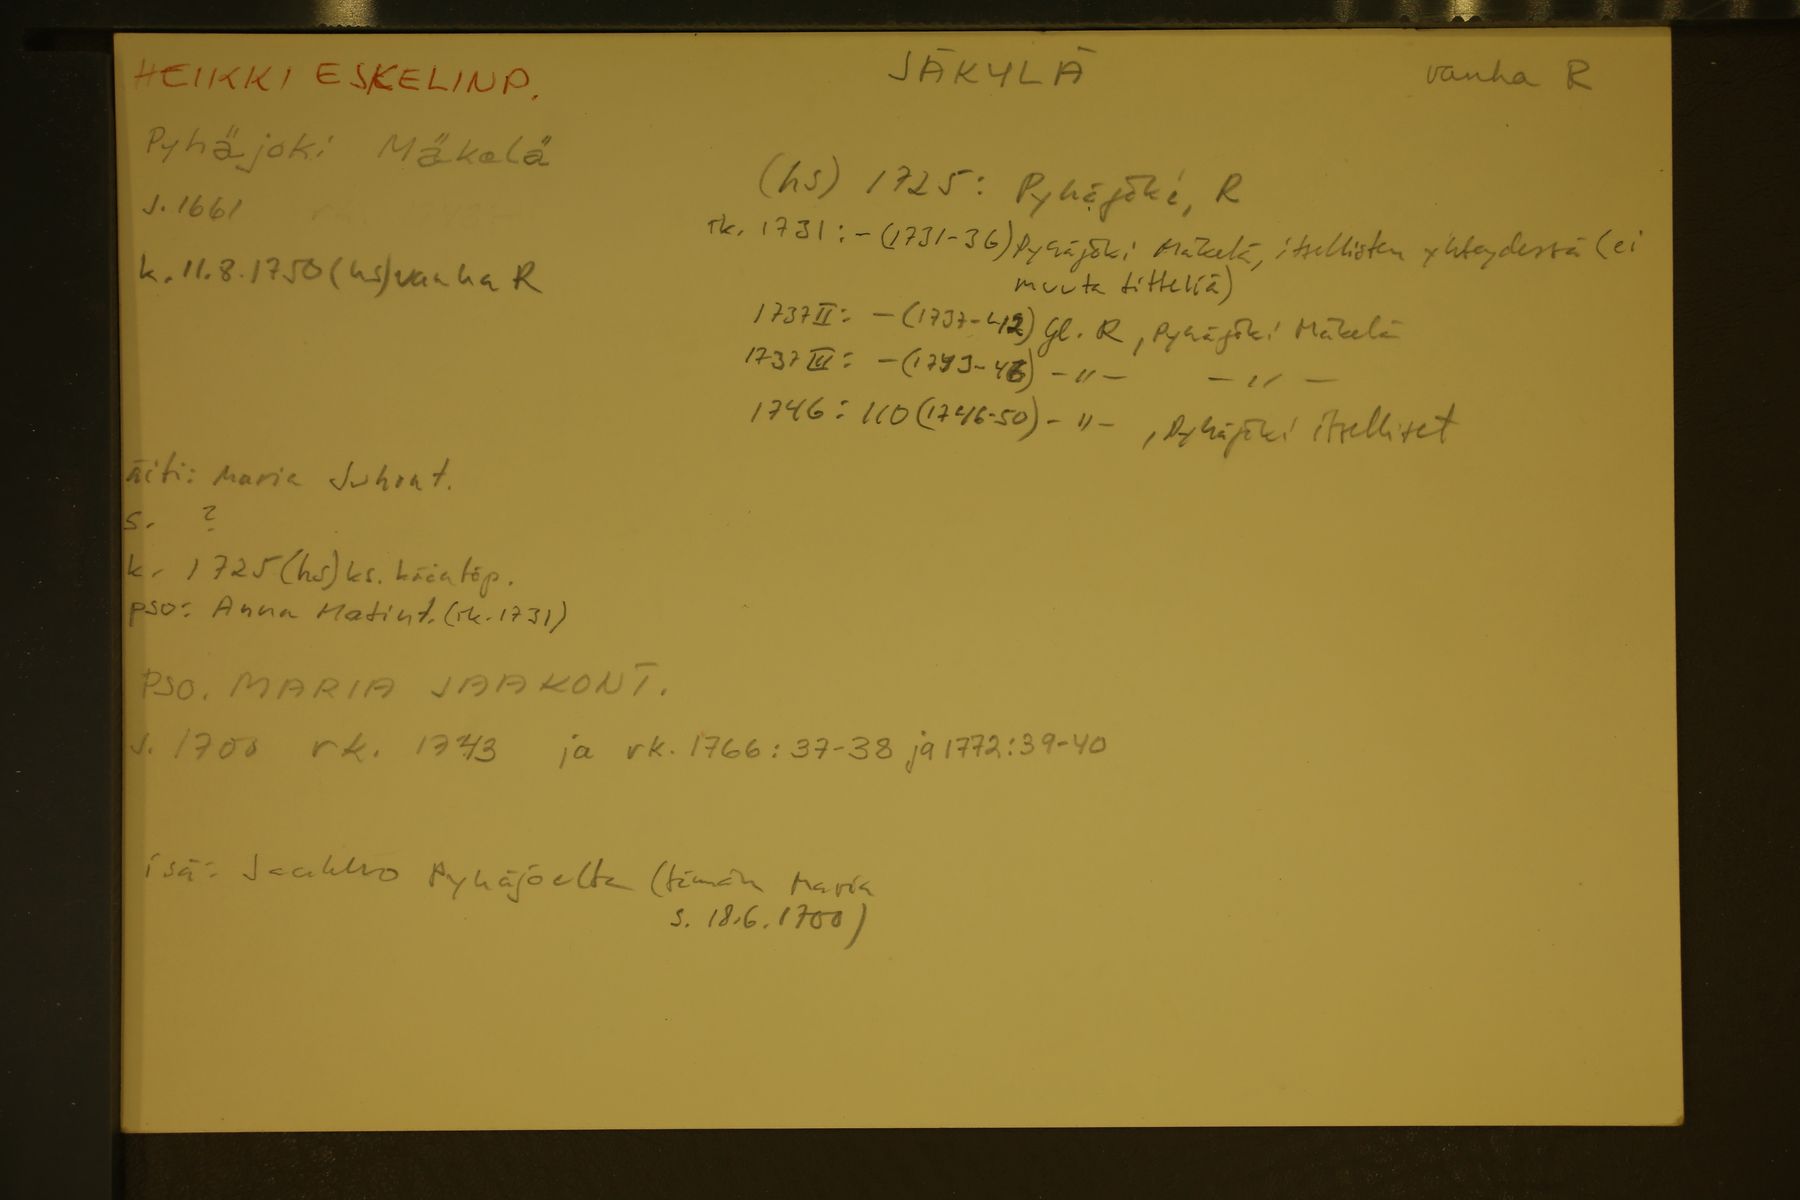 HEIKKI ESKELINP. JÄKYLÄ vanha R
Pyhäjoki Mäkelä
s. 1661
k. 11.8.1750 (hs) vanha R
(hs) 1725: Pyhäjoki, R
rk. 1731: - (1731-36) Pyhäjoki Mäkelä, itsellisten yhteydessä (ei
muuta titteliä)
1737 II: - (1737-42) Gl. R, Pyhäjoki Mäkelä
1737 III: - (1743-46) - " - - " -
1746: 110 (1746-50) - " - , Pyhäjoki itselliset
äiti: Maria Juhont.
s. ?
k. 1725 (hs) ks. kääntöp.
pso: Anna Matint. (rk. 1731)
PSO. MARIA JAAKONT.
s. 1700 rk. 1743 ja rk. 1766: 37-38 ja 1772: 39-40
isä: Jaakko Pyhäjoelta (tämän Maria
s. 18.6.1700)